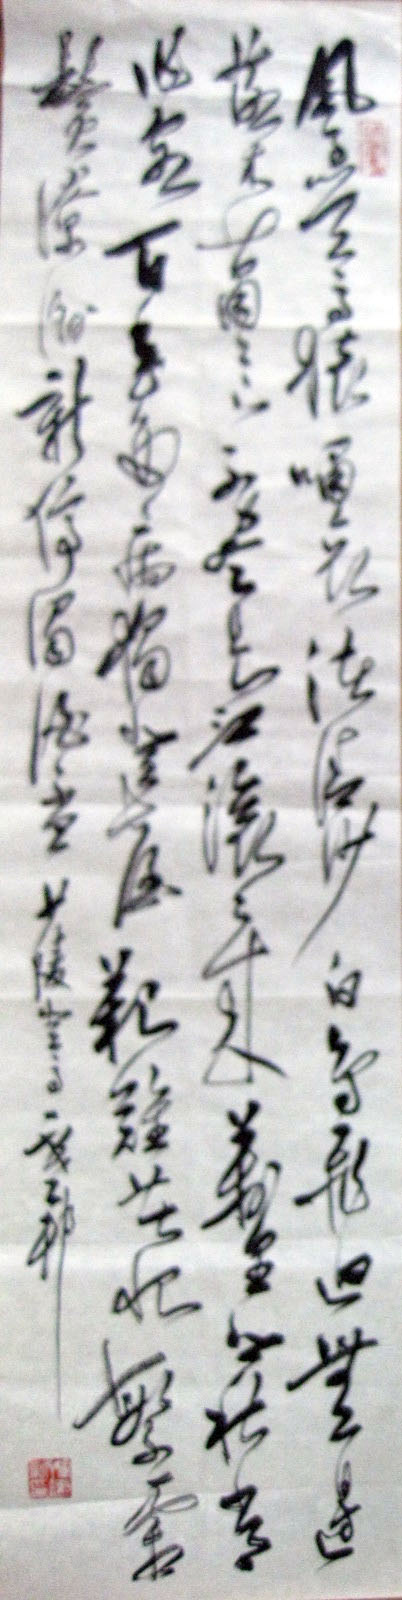 風急天高猿嘯哀渚清沙白鳥飛迴無邊
落木蕭蕭下不盡長江滾滾來萬里悲秋常
作客百年多病獨登臺艱難苦恨繁霜
鬢潦倒新停濁酒杯 少陵登高